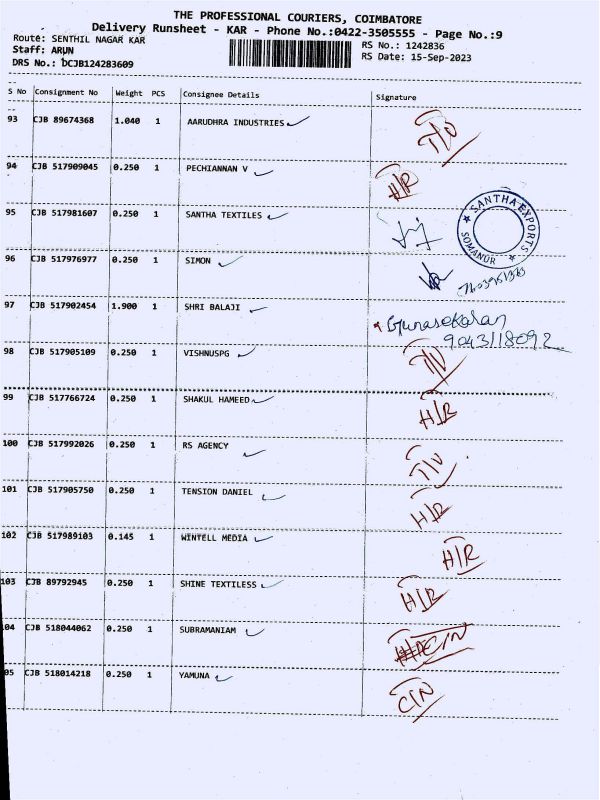 THE PROFESSIONAL COURIERS, COIMBATORE
Delivery Runsheet - KAR - Phone No.:0422-3505555 - Page No.:9
Route: SENTHIL NAGAR KAR RS No.: 1242836
Staff: ARUN RS Date: 15-Sep-2023
DRS No.: DCJB124283609
S No Consignment No Weight PCS Consignee Details Signature
93 CJB 89674368 1.040 1 AARUDHRA INDUSTRIES
94 CJB 517909045 0.250 1 PECHIANNAN V H/R
95 CJB 517981607 0.250 1 SANTHA TEXTILES
SANTHA EXPORTS SOMANUR
96 CJB 517976977 0.250 1 SIMON
97 CJB 517902454 1.900 1 SHRI BALAJI Gunasekaran
9043118092
98 CJB 517905109 0.250 1 VISHNUSPG
99 CJB 517766724 0.250 1 SHAKUL HAMEED H/R
100 CJB 517992026 0.250 1 RS AGENCY
101 CJB 517905750 0.250 1 TENSION DANIEL H/R
102 CJB 517989103 0.145 1 WINTELL MEDIA H/R
103 CJB 89792945 0.250 1 SHINE TEXTILESS H/R
04 CJB 518044062 0.250 1 SUBRAMANIAM
05 CJB 518014218 0.250 1 YAMUNA C/N